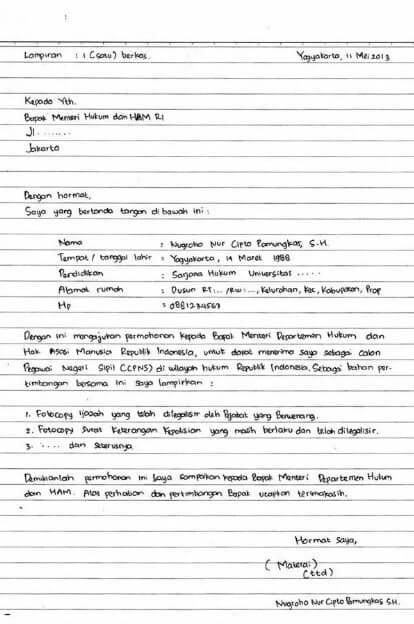 Lampiran : 1 (satu) berkas. Yogyakarta, 11 Mei 2013
Kepada Yth.
Bapak Menteri Hukum dan HAM RI
Jl. .......
Jakarta
Dengan hormat,
Saya yang bertanda tangan dibawah ini :
Nama : Nugroho Nur Cipto Pamungkas, S.H.
Tempat / tanggal lahir : Yogyakarta, 14 Maret 1988
Pendidikan : Sarjana Hukum Universitas .....
Alamat rumah : Dusun RT... /RW:..., Kelurahan, Kec, Kabupaten, Prop
Hp : 0881234567
Dengan ini mengajukan permohonan kepada Bapak Menteri Departemen Hukum dan
Hak Asasi Manusia Republik Indonesia, untuk dapat menerima saya sebagai calon
Pegawai Negeri Sipil (CPNS) di wilayah hukum Republik Indonesia. Sebagai bahan per-
timbangan bersama ini saya lampirkan :
1. Fotocopy Ijasah yang telah dilegalisir oleh Pejabat yang Berwenang.
2. Fotocopy Surat Keterangan Kepolisian yang masih berlaku dan telah dilegalisir.
3. .... dan seterusnya
Demikianlah permohonan ini saya sampaikan kepada Bapak Menteri Departemen Hukum
dan HAM. Atas perhatian dan pertimbangan Bapak ucapkan terimakasih.
Hormat Saya,
( Materai )
(ttd)
Nugroho Nur Cipto Pamungkas S.H.